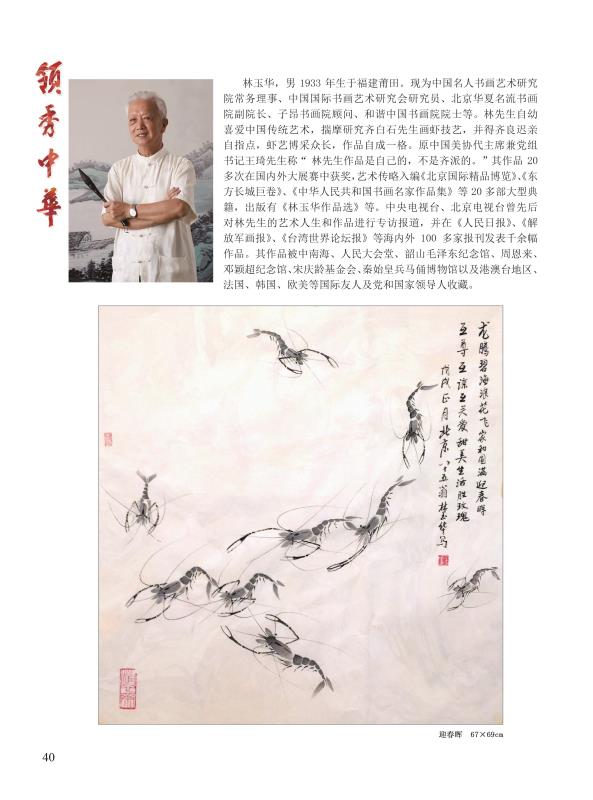 领秀中华
林玉华，男 1933 年生于福建莆田。现为中国名人书画艺术研究
院常务理事、中国国际书画艺术研究会研究员、北京华夏名流书画
院副院长、子昂书画院顾问、和谐中国书画院院士等。林先生自幼
喜爱中国传统艺术，揣摩研究齐白石先生画虾技艺，并得齐良迟亲
自指点，虾艺博采众长，作品自成一格。原中国美协代主席兼党组
书记王琦先生称“ 林先生作品是自己的，不是齐派的。”其作品 20
多次在国内外大展赛中获奖,艺术传略入编《北京国际精品博览》、《东
方长城巨卷》、《中华人民共和国书画名家作品集》等 20 多部大型典
籍，出版有《林玉华作品选》等。中央电视台、北京电视台曾先后
对林先生的艺术人生和作品进行专访报道，并在《人民日报》、《解
放军画报》、《台湾世界论坛报》等海内外 100 多家报刊发表千余幅
作品。其作品被中南海、人民大会堂、韶山毛泽东纪念馆、周恩来、
邓颖超纪念馆、宋庆龄基金会、秦始皇兵马俑博物馆以及港澳台地区、
法国、韩国、欧美等国际友人及党和国家领导人收藏。
龙腾碧海浪花飞家和国满迎春晖
互尊互谅互关爱甜美生活胜玫瑰
戊戌正月北京八十五翁林玉华写
迎春晖 67×69cm
40